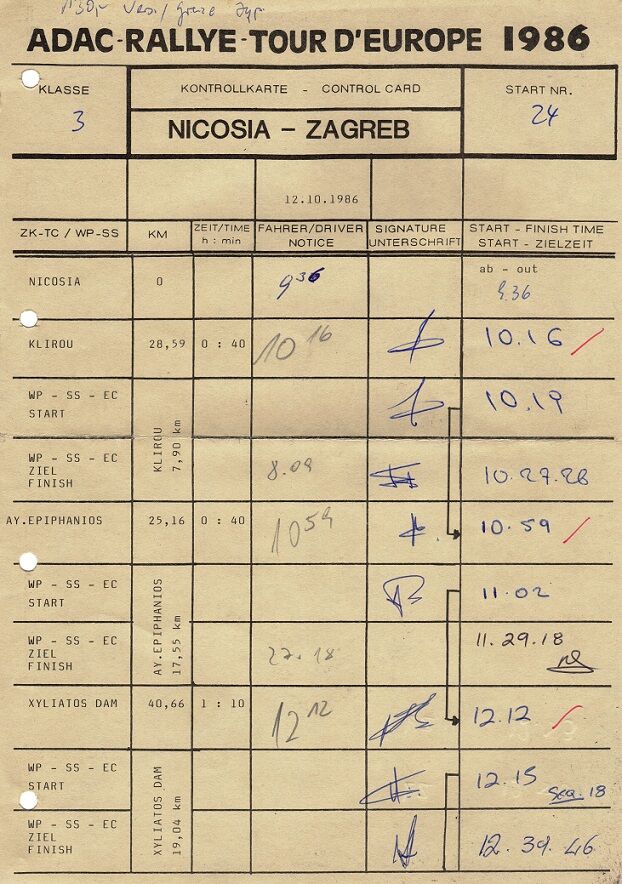 ADAC-RALLYE-TOUR D'EUROPE 1986
KLASSE
3
KONTROLLKARTE - CONTROL CARD
NICOSIA - ZAGREB
START NR.
24
12.10.1986
ZK-TC / WP-SS
KM
ZEIT/TIME
h : min
FAHRER/DRIVER
NOTICE
SIGNATURE
UNTERSCHRIFT
START - FINISH TIME
START - ZIELZEIT
NICOSIA 0 9 36 ab - out
9.36
KLIROU 28,59 0 : 40 10 16 10.16
WP - SS - EC
START
10.19
KLIROU
7,90 km
WP - SS - EC
ZIEL
FINISH
8.09 10.27.28
AY.EPIPHANIOS 25,16 0 : 40 10 59 10.59
WP - SS - EC
START
11.02
AY.EPIPHANIOS
17,55 km
WP - SS - EC
ZIEL
FINISH
27.18 11.29.18
XYLIATOS DAM 40,66 1 : 10 12 12 12.12
WP - SS - EC
START
12.15
18
XYLIATOS DAM
19,04 km
WP - SS - EC
ZIEL
FINISH
12.39.46